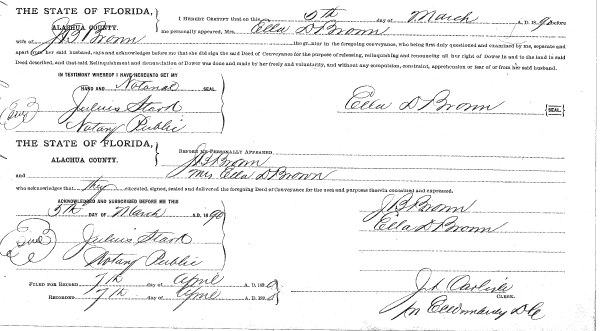 THE STATE OF FLORIDA,
ALACHUA COUNTY.
I HEREBY CERTIFY that on this 5th day of March A. D. 1890 before
me personally appeared, Mrs. Ella D Brown
wife of J B Brown the grantor in the foregoing conveyance, who being first duly questioned and examined by me, separate and
apart from her said husband, signed and acknowledged before me that she did sign the said Deed of Conveyance for the purpose of releasing, relinquishing and renouncing all her right of Dower in and to the land in said
Deed described, and that said Relinquishment and Renunciation of Dower was done and made by her freely and voluntarily, and without any compulsion, constraint, apprehension or fear of or from her said husband.
IN TESTIMONY WHEREOF I HAVE HEREUNTO SET MY
HAND AND Notarial SEAL.
Julius Stark
Notary Public
Ella D Brown [SEAL]
THE STATE OF FLORIDA,
ALACHUA COUNTY.
BEFORE ME PERSONALLY APPEARED
J B Brown
and Mrs Ella D Brown
who acknowledges that they executed, signed, sealed and delivered the foregoing Deed of Conveyance for the uses and purposes therein contained and expressed.
ACKNOWLEDGED AND SUBSCRIBED BEFORE ME THIS
5th DAY OF March A. D. 1890
Julius Stark
Notary Public
J B Brown
Ella D Brown
FILED FOR RECORD 7th day of April A. D. 1890
RECORDED 7th day of April A. D. 1890
J A Carlisle
CLERK.